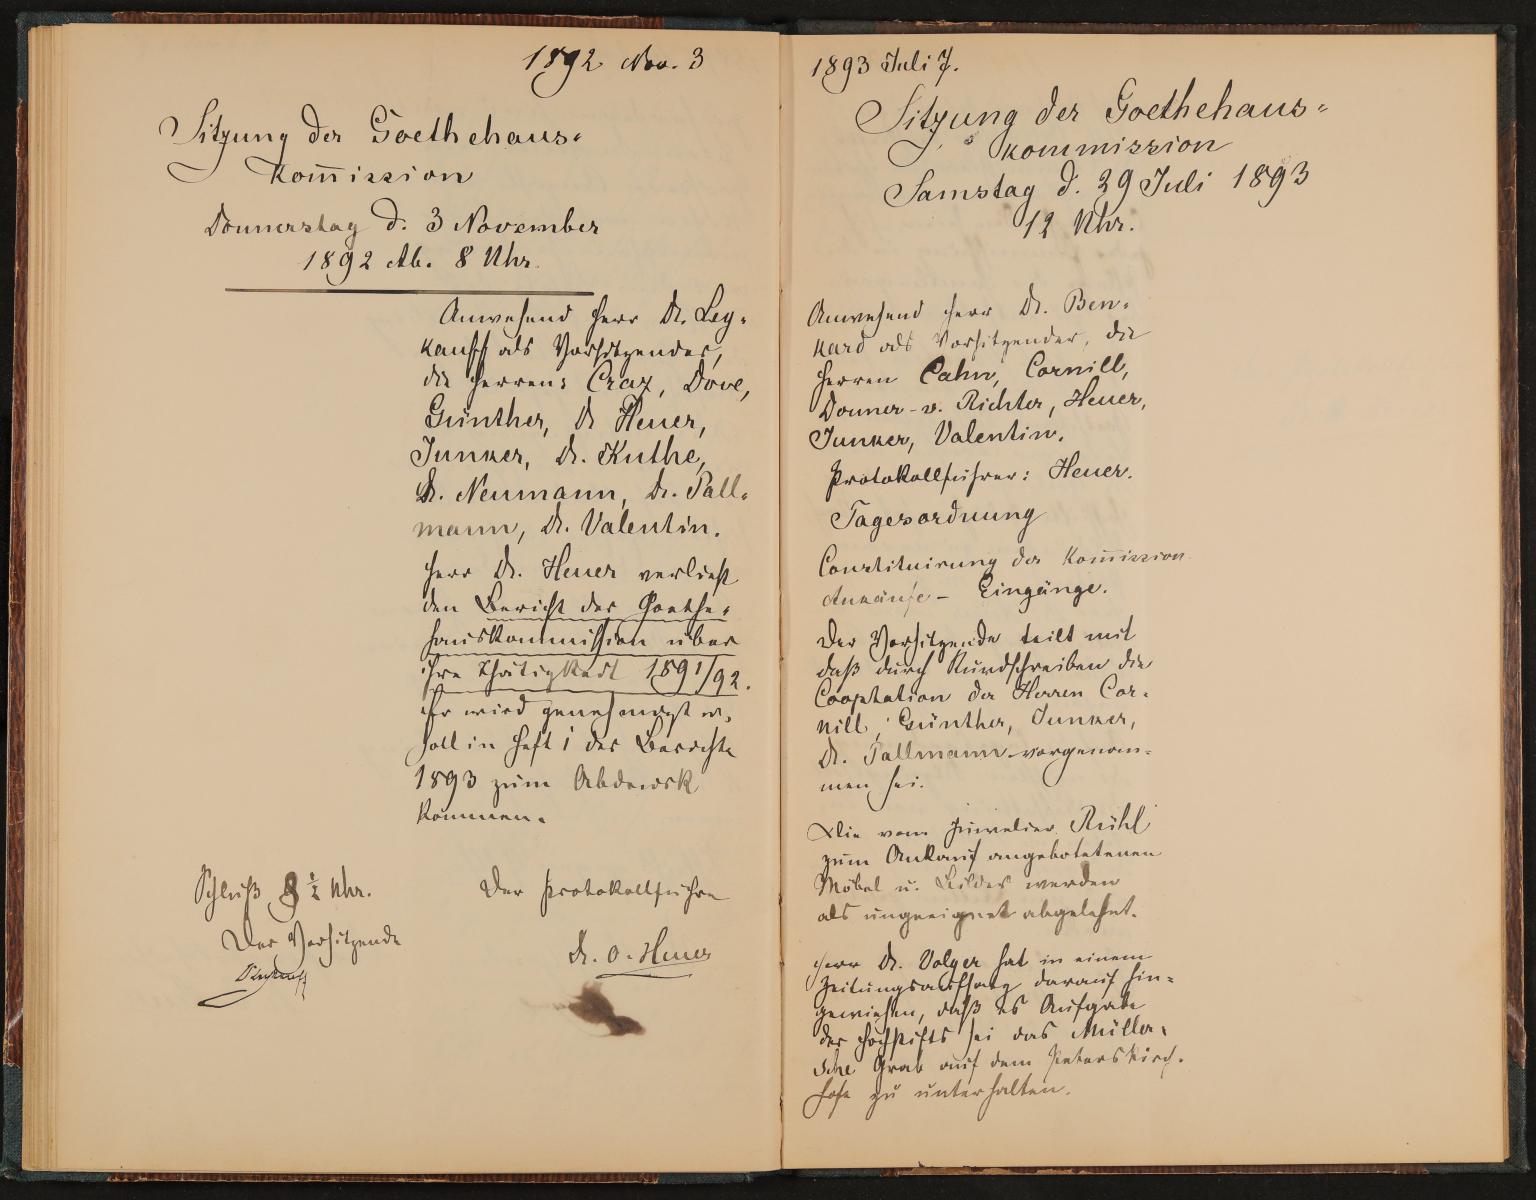 1892 Nov. 3
Sitzung der Goethehaus-
Kom̅ission
Donnerstag d. 3 November
1892 Ab. 8 Uhr.
Anwesend Herr Dr. Ley-
kauff als Vorsitzender,
die Herren: Craz, Dove,
Günther, Dr Heuer,
Junker, Dr. Küthe,
Dr. Neumann, Dr. Pall-
mann, Dr. Valentin.
Herr Dr. Heuer verliest
den Bericht der Goethe-
hauskommission über
ihre Thätigkeit 1891/92.
Er wird genehmigt u.
soll in Heft 1 der Berichte
1893 zum Abdruck
kommen.
Schluß 8 ½ Uhr.
Der Vorsitzende
Der Protokollführer
Dr. O. Heuer
1893 Juli 7.
Sitzung der Goethehaus-
kommission
Samstag d. 29 Juli 1893
12 Uhr.
Anwesend Herr Dr. Ben-
kard als Vorsitzender, die
Herren Cahn, Cornill,
Donner-v. Richter, Heuer,
Junker, Valentin.
Protokollführer: Heuer.
Tagesordnung
Constituirung der Kom̅ission
Ankäufe – Eingänge.
Der Vorsitzende teilt mit
daß durch Rundschreiben die
Cooptation der Herren Cor-
nill, Günther, Junker,
Dr. Pallmann vorgenom-
men sei.
Die vom Juwelier Rühl
zum Ankauf angebotetenen
Möbel u. Bilder werden
als ungeeignet abgelehnt.
Herr Dr. Volger hat in einem
Zeitungsaufsatz darauf hin-
gewiesen, daß es Aufgabe
des Hochstifts sei das Müller-
sche Grab auf dem Peterskirch-
hofe zu unterhalten.